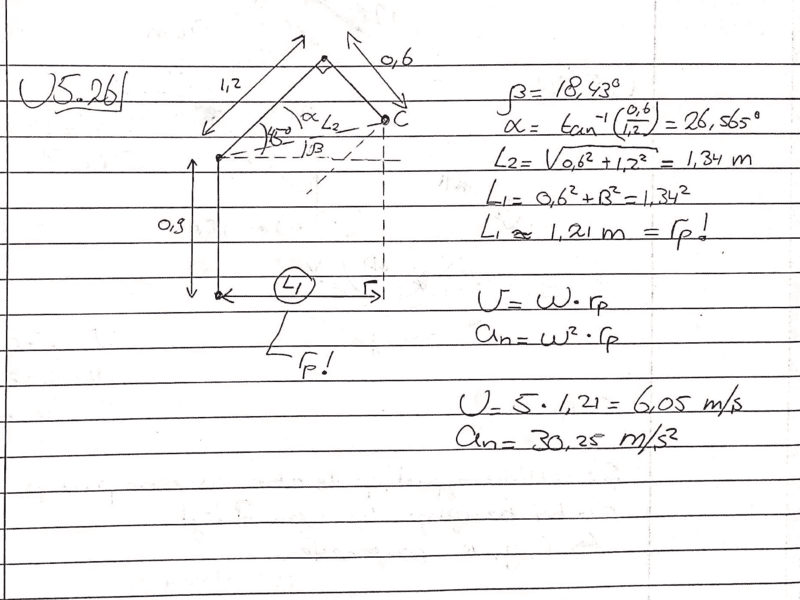 U5.26
1,2
0,6
α
L2
C
45°
β
0,9
L1
rp!
β = 18,43°
α = tan⁻¹(0,6/1,2) = 26,565°
L2 = √(0,6² + 1,2²) = 1,34 m
L1 = 0,6² + B² = 1,34²
L1 ≈ 1,21 m = rp!
U = ω · rp
an = ω² · rp
U = 5 · 1,21 = 6,05 m/s
an = 30,25 m/s²